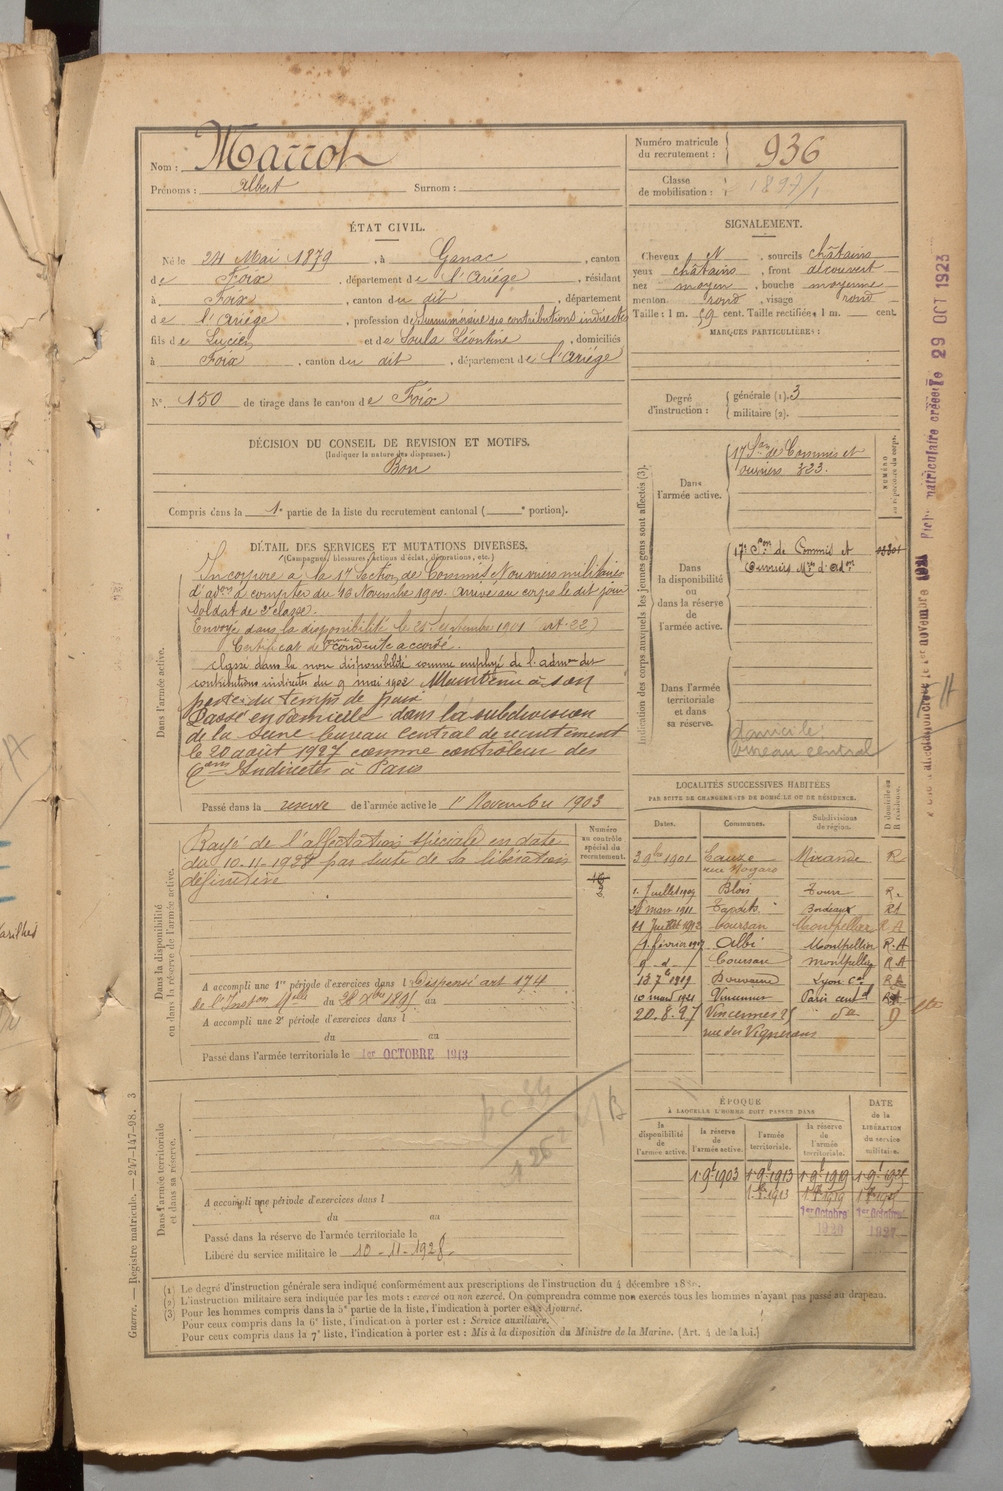 Nom : Marrot
Prénoms : Albert Surnom :
Numéro matricule du recrutement : 936
Classe de mobilisation : 1897/1
ÉTAT CIVIL.
Né le 24 Mai 1879, à Ganac, canton
de Foix, département de l'Ariége, résidant
à Foix, canton du dit, département
de l'Ariége, profession de Surnuméraire des contributions indirectes
fils de Lucien et de Soula Léontine, domiciliés
à Foix, canton du dit, département de l'Ariége
N° 150 de tirage dans le canton de Foix
SIGNALEMENT.
Cheveux et, sourcils châtains
yeux châtains, front découvert
nez moyen, bouche moyenne
menton rond, visage rond
Taille : 1 m. 59 cent. Taille rectifiée : 1 m. cent.
MARQUES PARTICULIÈRES :
Degré d'instruction : générale (1). 3
militaire (2).
DÉCISION DU CONSEIL DE REVISION ET MOTIFS.
(Indiquer la nature des dispenses.)
Bon
Compris dans la 1e partie de la liste du recrutement cantonal ( e portion).
DÉTAIL DES SERVICES ET MUTATIONS DIVERSES.
(Campagnes, blessures, actions d'éclat, décorations, etc.)
Dans l'armée active.
Incorporé à la 17e Section de Commis et ouvriers militaires
d'adon à compter du 16 Novembre 1900. Arrivé au corps le dit jour
Soldat de 2e classe.
Envoyé dans la disponibilité le 21 Septembre 1901 (art. 22)
Certificat de bonne conduite accordé.
Classé dans la non disponibilité comme employé de l'admon des
contributions indirectes du 9 mai 1902 Maintenu à son
poste du temps de paix
Passé en domicile dans la subdivision
de la Seine bureau central de recrutement
le 20 août 1927 comme contrôleur des
Cons Indirectes à Paris
Passé dans la réserve de l'armée active le 1er Novembre 1903
Indication des corps auxquels les jeunes gens sont affectés (3).
NUMÉRO au répertoire du corps.
Dans l'armée active.
17e Son de Commis et
ouvriers 323.
Dans la disponibilité ou dans la réserve de l'armée active.
17e Son de Commis et
Ouvriers Mres d'Adon
Dans l'armée territoriale et dans sa réserve.
domicile
bureau central
Dans la disponibilité ou dans la réserve de l'armée active.
Numéro au contrôle spécial du recrutement.
Rayé de l'affectation spéciale en date
du 10-11-1928 par suite de la libération
définitive
A accompli une 1re période d'exercices dans l Dispensé art 174
de l'Inston Mlle du 28 Xbre 1895 au
A accompli une 2e période d'exercices dans l
du au
Passé dans l'armée territoriale le 1er OCTOBRE 1913
LOCALITÉS SUCCESSIVES HABITÉES
PAR SUITE DE CHANGEMENTS DE DOMICILE OU DE RÉSIDENCE.
Dates. Communes. Subdivisions de région. D domicile ou R résidence.
3 9bre 1901 Eauze Mirande R
rue Nogaro
1. Juillet 1907 Blois Tours R.
mars 1911 Bordeaux
11 Juillet 1912 Coursan Montpellier R A
1. février Albi Montpellier R. A
d Coursan Montpellier R A
Lyon
10 mars 1921 Vincennes Paris centl
20.8.27 Vincennes 25 da D
rue des Vignerons
Dans l'armée territoriale et dans sa réserve.
A accompli une période d'exercices dans l
du au
Passé dans la réserve de l'armée territoriale le
Libéré du service militaire le 10-11-1928.
ÉPOQUE
À LAQUELLE L'HOMME DOIT PASSER DANS
la disponibilité de l'armée active. la réserve de l'armée active. l'armée territoriale. la réserve de l'armée territoriale. DATE de la LIBÉRATION du service militaire.
1 9e 1903 1 9e 1913 1 9e 1919
1er Octobre 1er Octobre
1927
(1) Le degré d'instruction générale sera indiqué conformément aux prescriptions de l'instruction du 4 décembre 1889.
(2) L'instruction militaire sera indiquée par les mots : exercé ou non exercé. On comprendra comme non exercés tous les hommes n'ayant pas passé au drapeau.
(3) Pour les hommes compris dans la 5e partie de la liste, l'indication à porter est : Ajourné.
Pour ceux compris dans la 6e liste, l'indication à porter est : Service auxiliaire.
Pour ceux compris dans la 7e liste, l'indication à porter est : Mis à la disposition du Ministre de la Marine. (Art. 4 de la loi.)
Guerre. — Registre matricule. — 247-147-98. 3
Fiche matriculaire créée le 29 OCT 1923